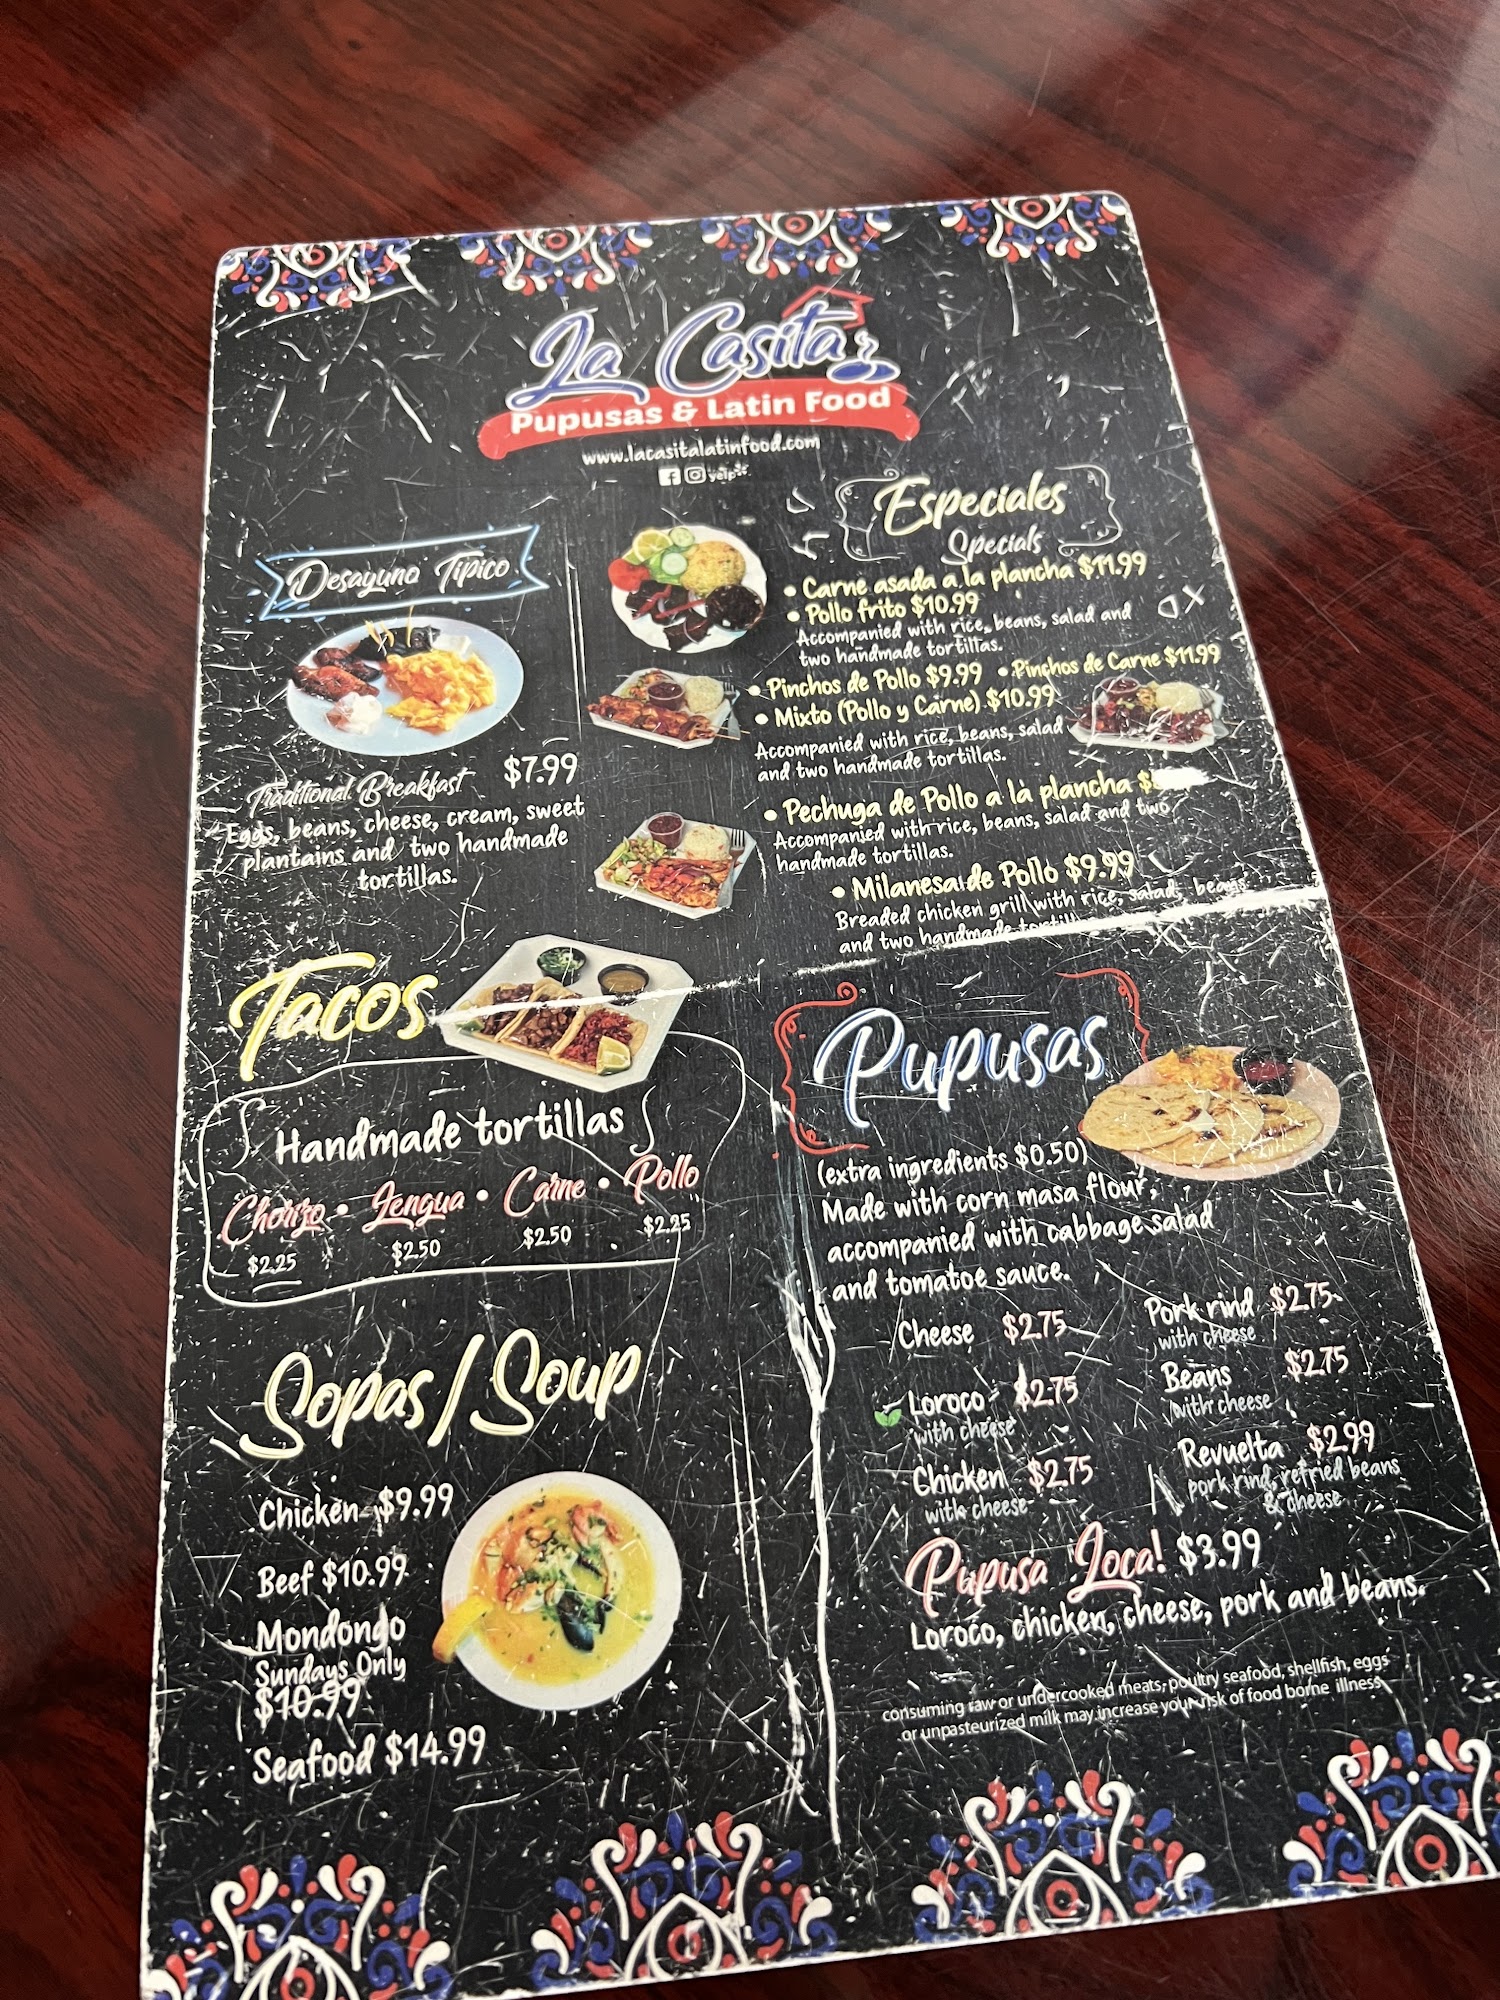 La Casita
Pupusas & Latin Food
www.lacasitalatinfood.com
yelp
Desayuno Tipico
Traditional Breakfast $7.99
Eggs, beans, cheese, cream, sweet
plantains and two handmade
tortillas.
Especiales
Specials
• Carne asada a la plancha $11.99
• Pollo frito $10.99
Accompanied with rice, beans, salad and
two handmade tortillas.
• Pinchos de Pollo $9.99 • Pinchos de Carne $11.99
• Mixto (Pollo y Carne) $10.99
Accompanied with rice, beans, salad
and two handmade tortillas.
• Pechuga de Pollo a la plancha
Accompanied with rice, beans, salad and two
handmade tortillas.
• Milanesa de Pollo $9.99
Breaded chicken grill with rice, salad, beans
and two handmade
Tacos
Handmade tortillas
Chorizo • Lengua • Carne • Pollo
$2.25 $2.50 $2.50 $2.25
Sopas / Soup
Chicken $9.99
Beef $10.99
Mondongo
Sundays Only
$10.99
Seafood $14.99
Pupusas
(extra ingredients $0.50)
Made with corn masa flour,
accompanied with cabbage salad
and tomatoe sauce.
Cheese $2.75
Loroco $2.75
with cheese
Chicken $2.75
with cheese
Pork rind $2.75
with cheese
Beans $2.75
with cheese
Revuelta $2.99
pork rind, refried beans
& cheese
Pupusa Loca! $3.99
Loroco, chicken, cheese, pork and beans.
consuming raw or undercooked meats, poultry seafood, shellfish, eggs
or unpasteurized milk may increase your risk of food borne illness